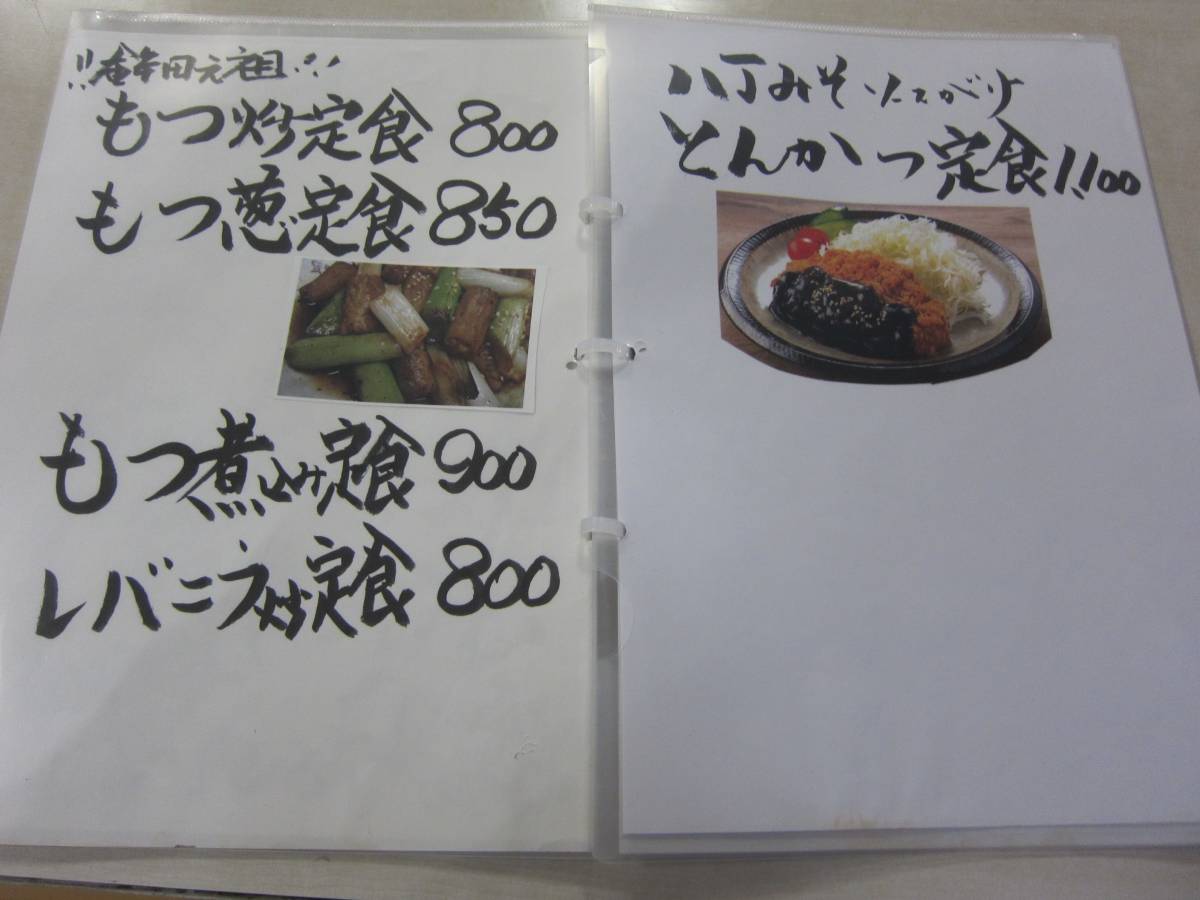 田元祖!!
もつ炒定食 800
もつ葱定食 850
もつ煮込み定食 900
レバニラ炒定食 800
八丁みそソースがけ
とんかつ定食 1.100